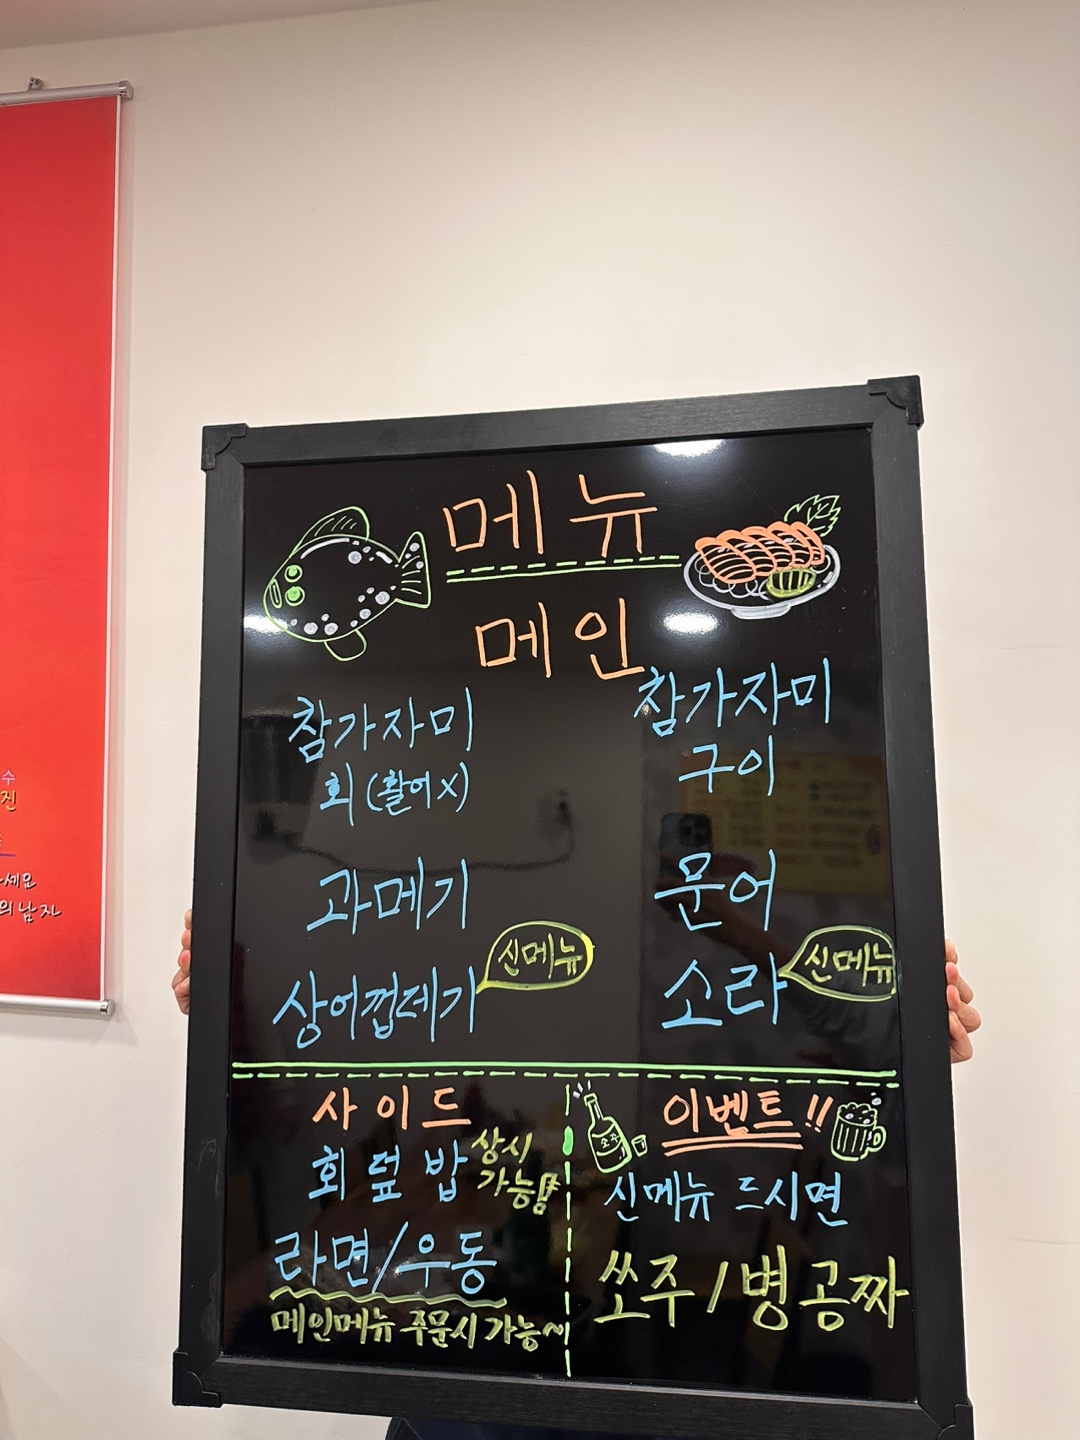 수
진
세요
의 남자
메뉴
메인
참가자미
회 (활어 X)
과메기
상어껍데기
신메뉴
참가자미
구이
문어
소라
신메뉴
사이드
회덮밥
상시
가능!!
라면/우동
메인메뉴 주문시 가능~
이벤트!!
신메뉴 드시면
쏘주 1병 공짜